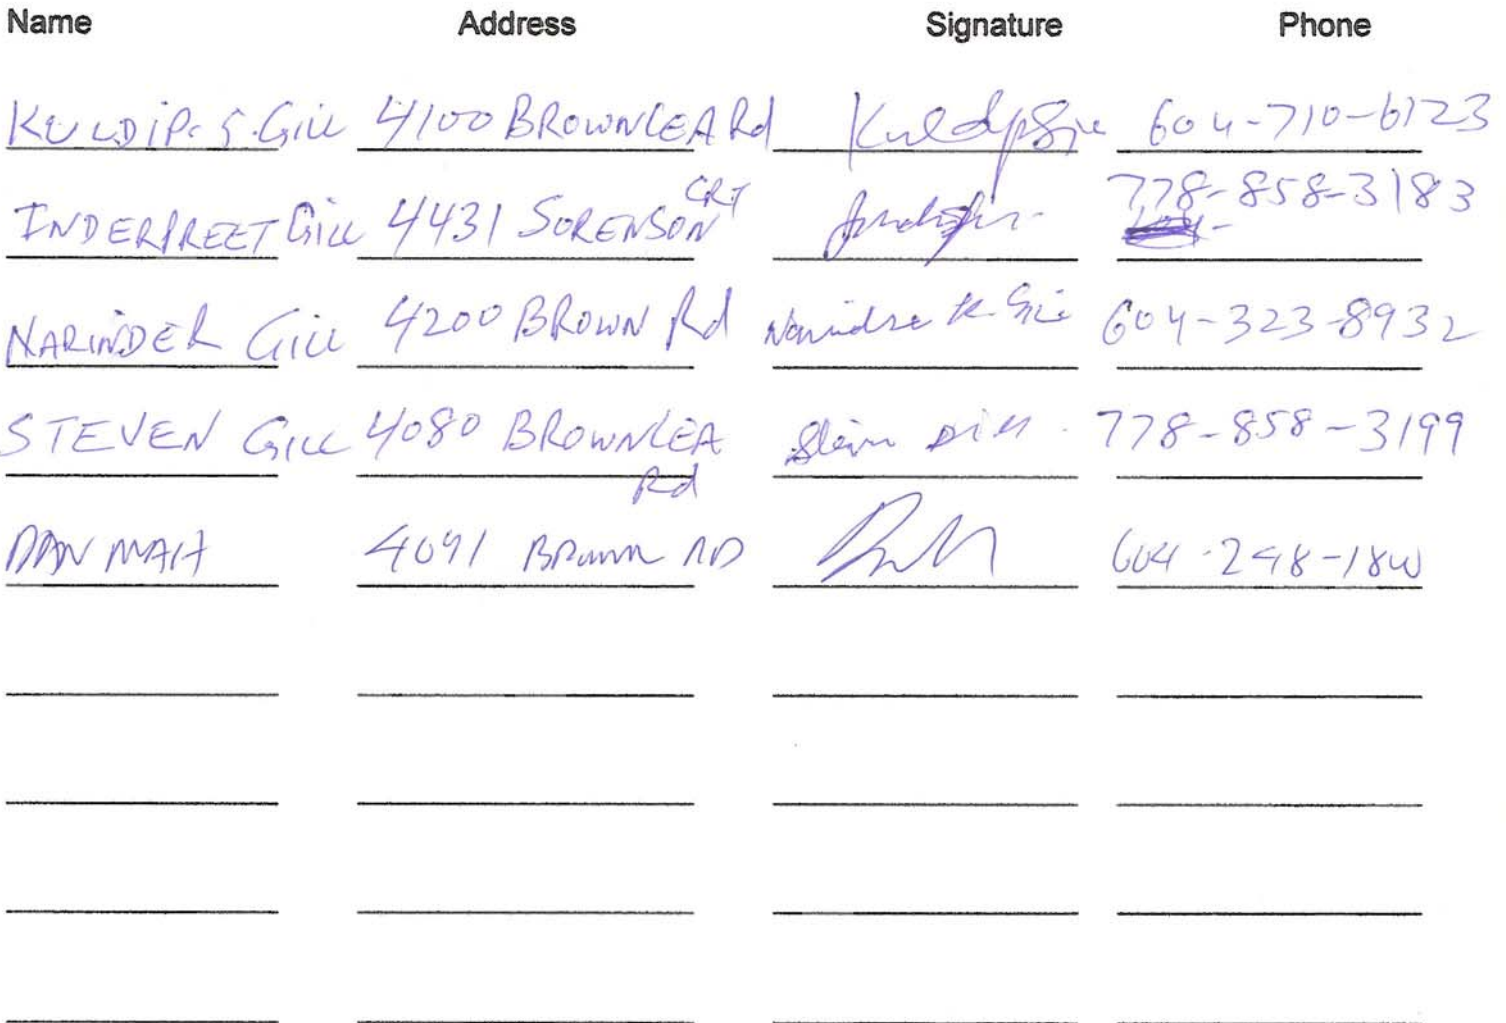 Name Address Signature Phone
KULDIP. S. Gill 4100 BROWNLEA Rd KuldipGill 604-710-6123
INDERPREET Gill 4431 SORENSON CRT 778-858-3183
NARINDER Gill 4200 BROWN Rd Narinder K Gill 604-323-8932
STEVEN GILL 4080 BROWNLEA Rd Steven Gill 778-858-3199
DAN MAH 4091 BROWN RD 604-248-18